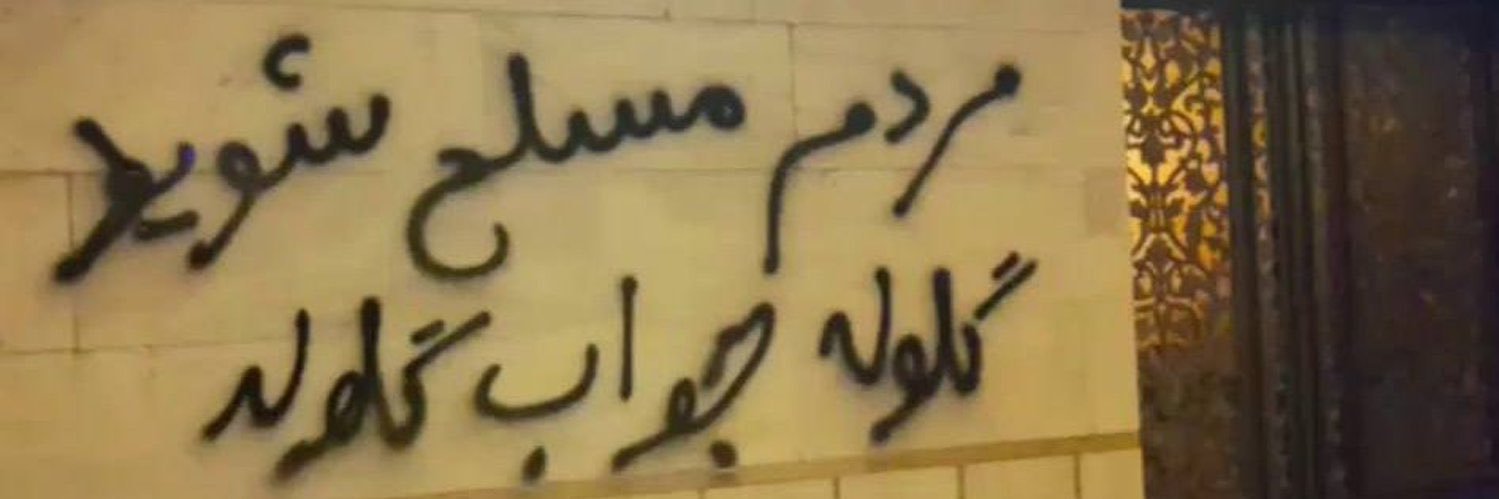 مردم مسلح شوید
گلوله جواب گلوله